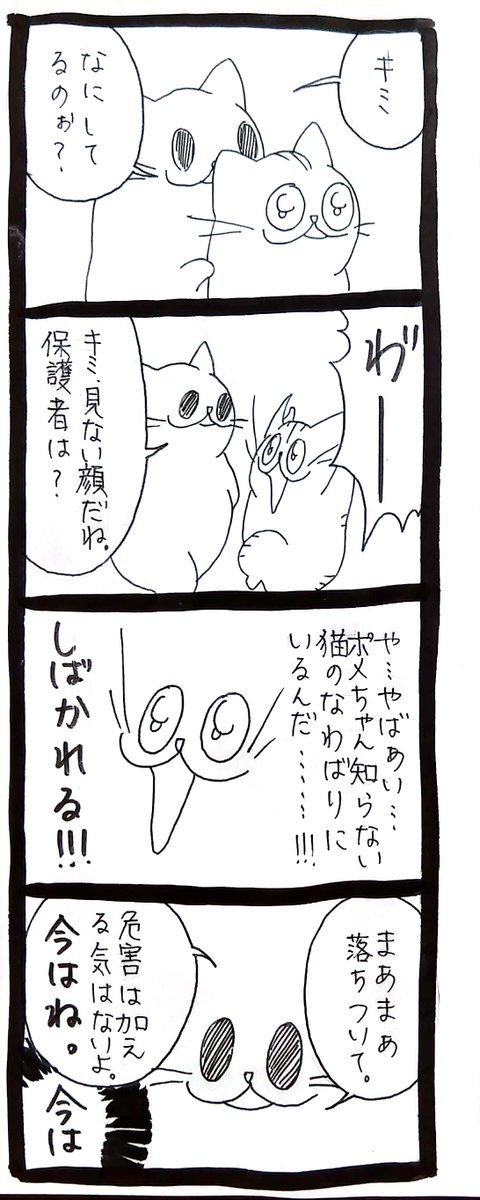 キミ
なにして
るのぉ?
わ゛ーー
キミ、見ない顔だね。
保護者は?
や…やばぁい…
ポメちゃん知らない
猫のなわばりに
いるんだ………!!!
しばかれる!!!
まあまぁ
落ちついて。
危害は加え
る気はないよ。
今はね。
今は